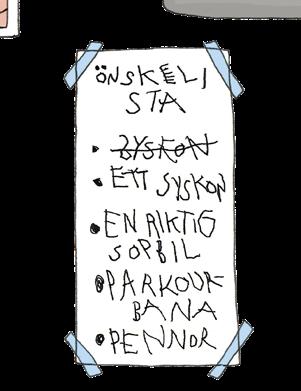 ÖNSKELI
STA
• SYSKON
• ETT SYSKON
• EN RIKTIG
SOPBIL
• PARKOUR
BANA
• PENNOR